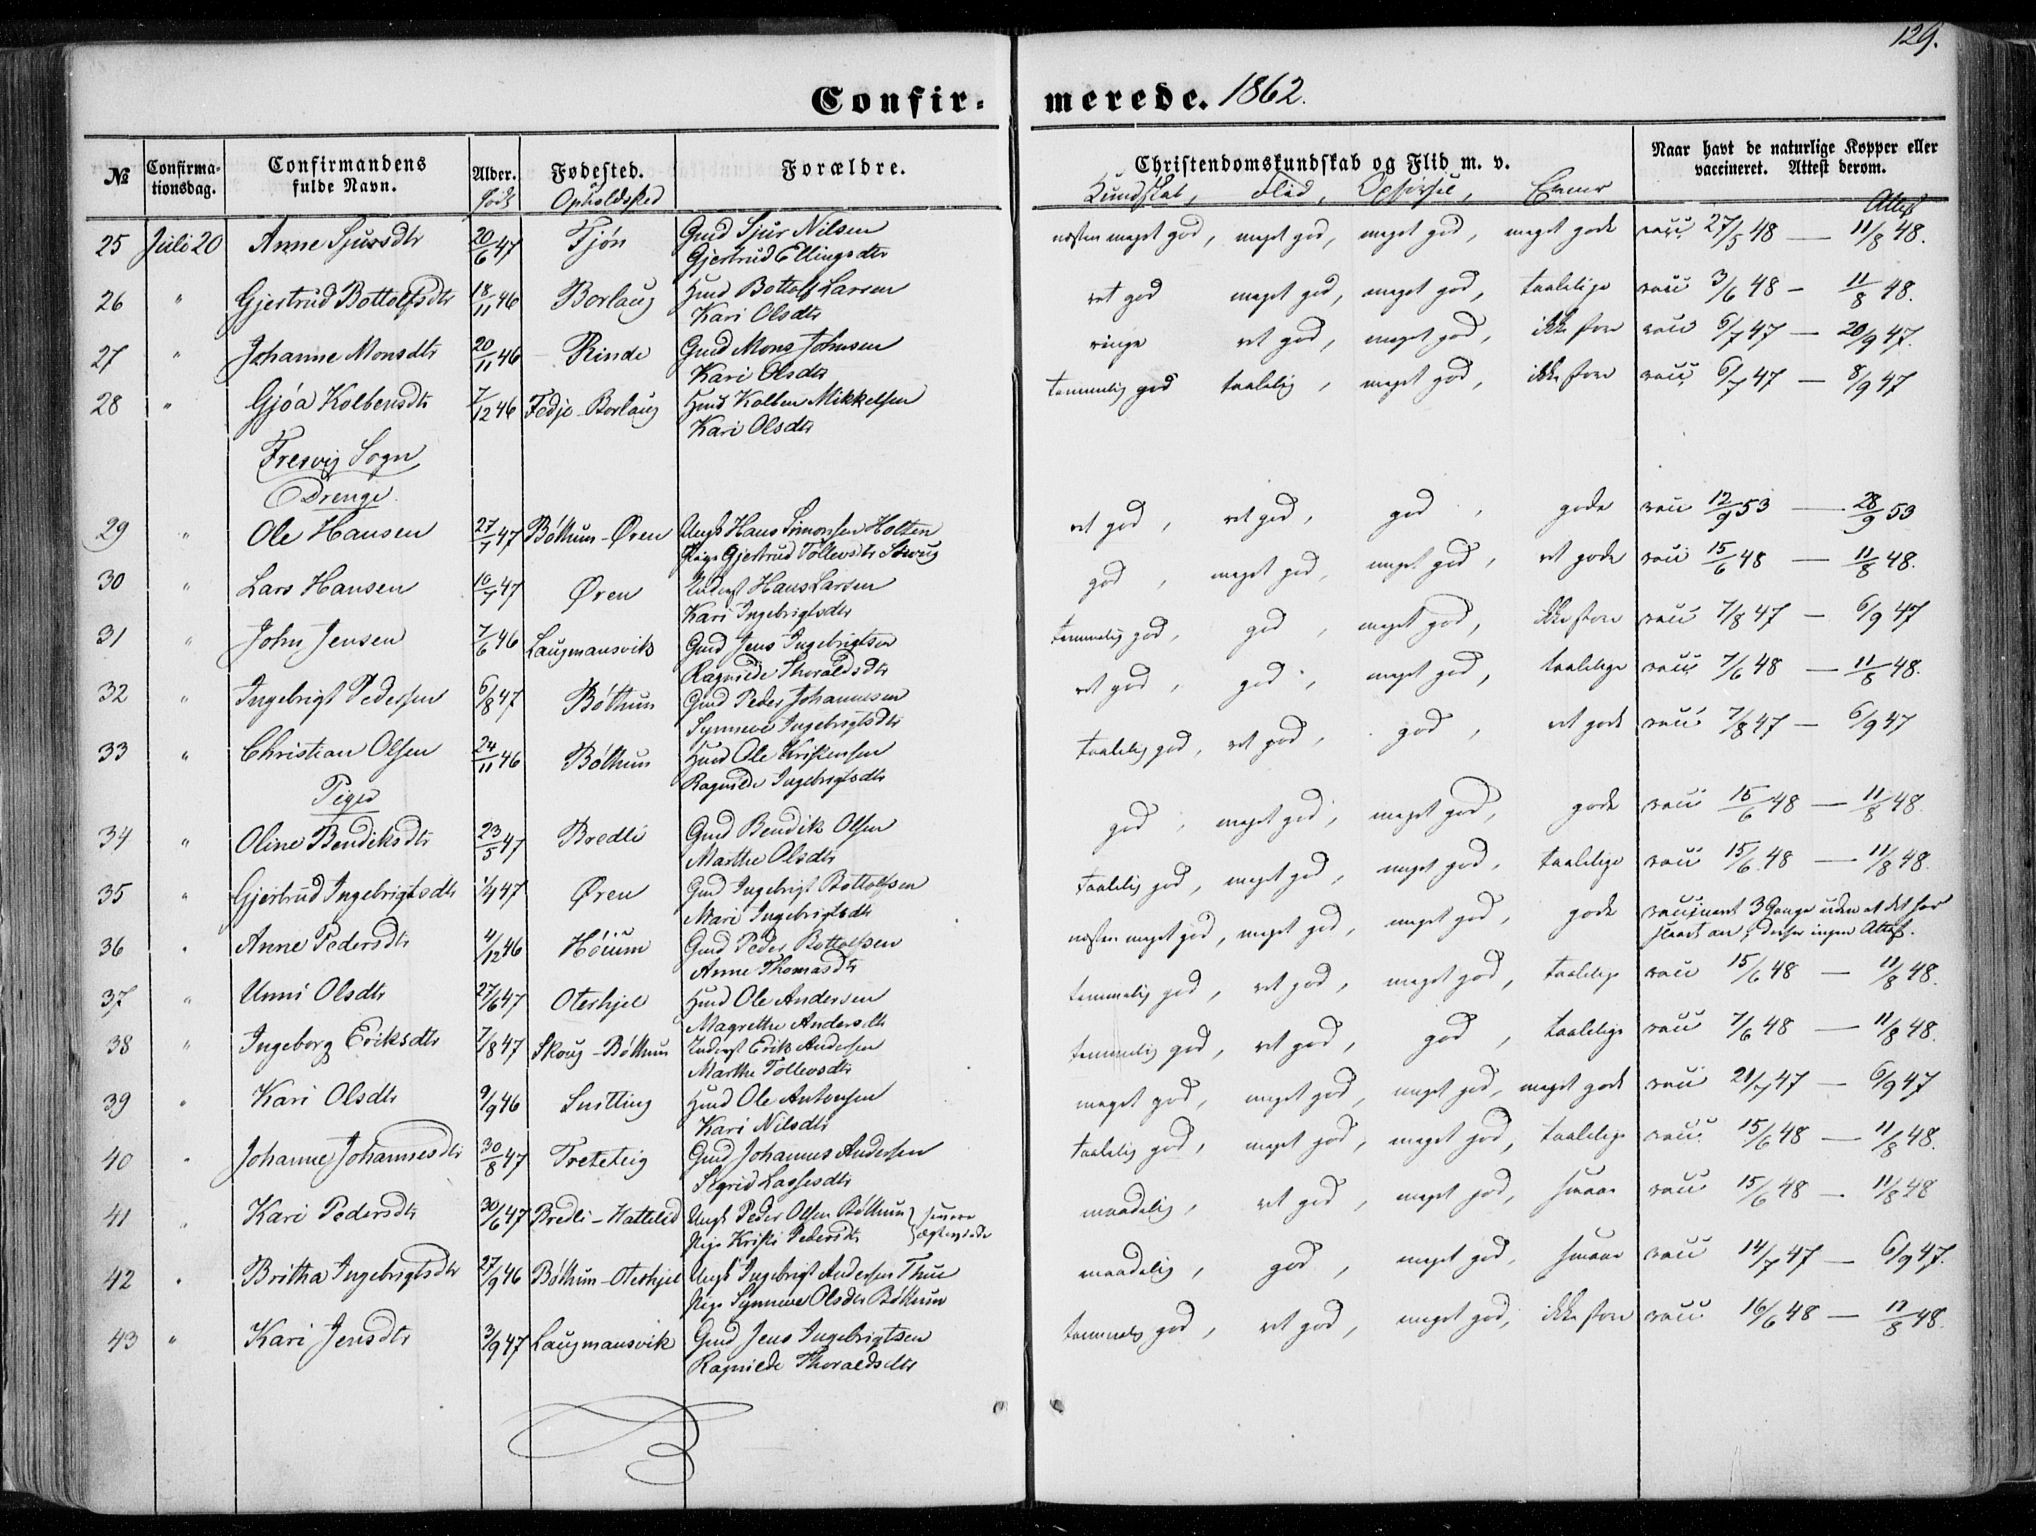 129.
Confirmerede. 1862.
№ Confirmationsdag. Confirmandens fulde Navn. Alder. Fødested. Forældre. Christendomskundskab og Flid m. v. Naar havt de naturlige Kopper eller vaccineret. Attest derom.
født Opholdsted Kundskab, Flid, Opførsel, Evner Attest
25 Juli 20 Anne Sjursdtr 20/6 47 Tjøn Gmd Sjur Nilsen næsten meget god, meget god, meget god, meget gode vacc 27/5 48 — 11/8 48.
Gjertrud Ellingsdtr
26 " Gjertrud Bottolfsdtr 18/11 46 Borlaug Hmd Bottolf Larsen ret god meget god, meget god, taalelige vacc 3/6 48 — 11/8 48.
Kari Olsdtr
27 " Johanne Monsdtr 20/11 46 Rinde Gmd Mons Johnsen ringe ret god, meget god, ikke store vacc 6/7 47 — 20/9 47.
Kari Olsdtr
28 " Gjøa Kolbensdtr 7/12 46 Fedje-Borlaug Hmd Kolben Mikkelsen temmelig god taalelig, meget god, ikke store vacc 6/7 47 — 8/9 47
Kari Olsdtr
Fresvig Sogn
Drenge
29 " Ole Hansen 27/7 47 Bøthum-Øren Ungk Hans Simonsen Holten ret god, ret god, god, gode vacc 12/9 53 — 28/9 53
Pige Gjertrud Tollevsdtr Skoug
30 " Lars Hansen 10/7 47 Øren Inderst Hans Larsen god, meget god, meget god, ret gode vacc 15/6 48 — 11/8 48.
Kari Ingebrigtsdtr
31 " John Jensen 7/6 46 Laugmansvik Gmd Jens Ingebrigtsen temmelig god, god, meget god, ikke store vacc 7/8 47 — 6/9 47
Ragnilde Thoraldsdtr
32 " Ingebrigt Pedersen 6/8 47 Bøthum Gmd Peder Johannesen ret god, god, meget god, taalelige vacc 7/6 48 — 11/8 48.
Synneve Ingebrigtsdtr
33 " Christian Olsen 24/11 46 Bøthum Hmd Ole Kristensen taalelig god, ret god, god, ret gode vacc 7/8 47 — 6/9 47
Ragnilde Ingebrigtsdtr
Piger
34 " Oline Bendiksdtr 23/5 47 Bredli Gmd Bendik Olsen god, meget god, meget god, gode vacc 15/6 48 — 11/8 48.
Marthe Olsdtr
35 " Gjertrud Ingebrigtsdtr 1/1 47 Øren Gmd Ingebrigt Bottolfsen taalelig god, meget god, meget god, taalelige vacc 15/6 48 — 11/8 48.
Mari Ingebrigtsdtr
36 " Anne Pedersdtr 4/12 46 Høium Gmd Peder Bottolfsen næsten meget god, meget god, meget god, gode vaccineret 3 Gange uden at det har slaaet an, derfor ingen Attest.
Anne Thomasdtr
37 " Unni Olsdtr 27/6 47 Oterhjel Hmd Ole Andersen temmelig god, ret god, meget god, taalelige vacc 15/6 48 — 11/8 48.
Magrethe Andersdtr
38 " Ingeborg Eriksdtr 7/8 47 Skoug-Bøthum Inderst Erik Andersen temmelig god, ret god, god, taalelige vacc 7/6 48 — 11/8 48.
Marthe Tollevsdtr
39 " Kari Olsdtr 9/9 46 Snilling Hmd Ole Antonsen meget god, meget god, meget god, meget gode vacc 21/7 47 — 6/9 47
Kari Nilsdtr
40 " Johanne Johannesdtr 30/8 47 Treteteig Gmd Johannes Andersen taalelig god, meget god, meget god, taalelige vacc 15/6 48 — 11/8 48.
Sigrid Lassesdtr
41 " Kari Pedersdtr 30/6 47 Bredli-Hatteled Ungk Peder Olsen Bøthum } senere maadelig, ret god, meget god, smaae vacc 15/6 48 — 11/8 48
Pige Kristi Pedersdtr } ægteviede
42 " Britha Ingebrigtsdtr 27/9 46 Bøthum-Oterhjel Ungk Ingebrigt Andersen Thue maadelig, god, meget god, smaae vacc 14/7 47 — 6/9 47.
Pige Synneve Olsdtr Bøthum
43 " Kari Jensdtr 3/9 47 Laugmansvik Gmd Jens Ingebrigtsen temmelig god, ret god, meget god, ikke store vacc 16/6 48 — 12/8 48.
Ragnilde Thoraldsdtr